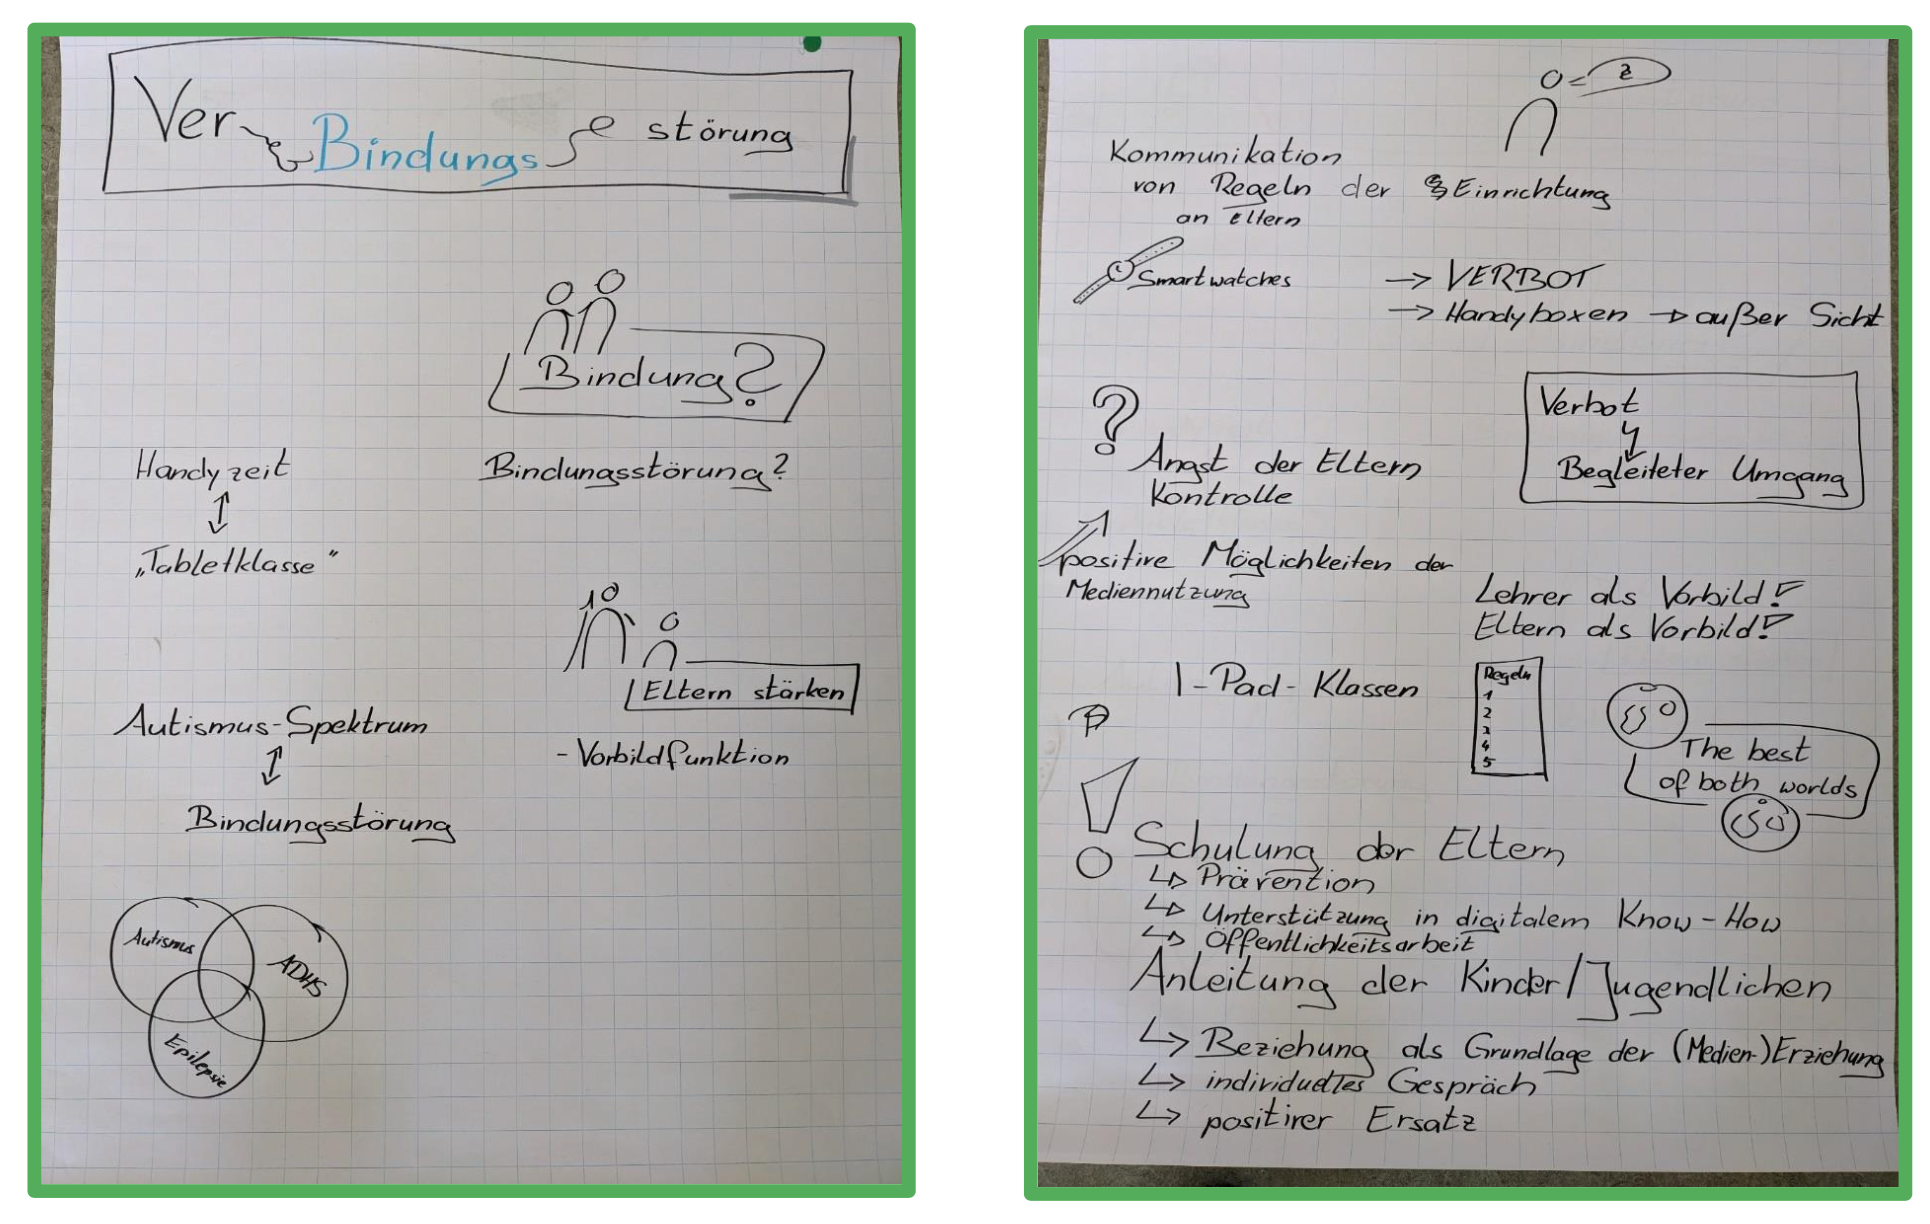 Ver Bindungs störung
Bindung?
Handyzeit
Bindungsstörung?
„Tabletklasse"
Eltern stärken
Autismus-Spektrum
- Vorbildfunktion
Bindungsstörung
Autismus
ADHS
Epilepsie
Kommunikation
von Regeln der Einrichtung
an Eltern
Smartwatches
→ VERBOT
→ Handyboxen → außer Sicht
?
Angst der Eltern
Kontrolle
Verbot
Begleiteter Umgang
positive Möglichkeiten der
Mediennutzung
Lehrer als Vorbild!
Eltern als Vorbild!
I-Pad-Klassen
Regeln
1
2
3
4
5
The best
of both worlds
!
Schulung der Eltern
↳ Prävention
↳ Unterstützung in digitalem Know-How
↳ Öffentlichkeitsarbeit
Anleitung der Kinder/Jugendlichen
↳ Beziehung als Grundlage der (Medien-)Erziehung
↳ individuelles Gespräch
↳ positiver Ersatz